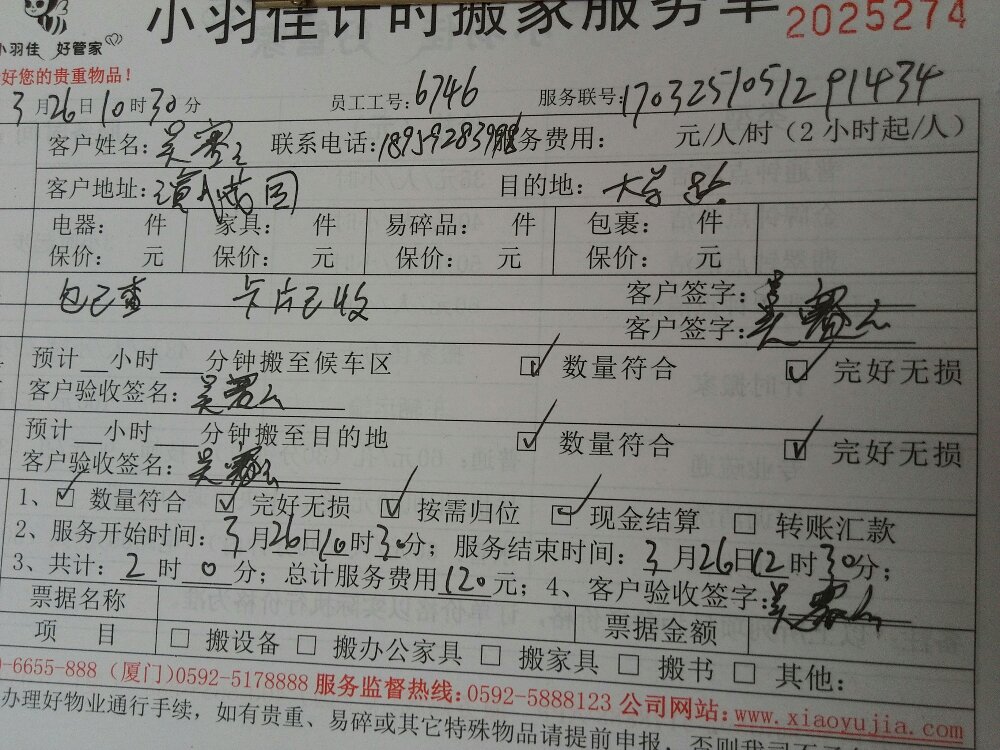 小羽佳计时搬家服务单 2025274
小羽佳 好管家
好您的贵重物品！
3月26日10时30分 员工工号：6746 服务联号：170325105129 91434
客户姓名：吴 联系电话： 服务费用： 元/人/时（2小时起/人）
客户地址： 目的地：大学路
电器： 件 家具： 件 易碎品： 件 包裹： 件
保价： 元 保价： 元 保价： 元 保价： 元
包已查 卡片已收 客户签字：吴
客户签字：吴
预计__小时___分钟搬至候车区 ☑ 数量符合 ☑ 完好无损
客户验收签名：吴
预计__小时___分钟搬至目的地 ☑ 数量符合 ☑ 完好无损
客户验收签名：吴
1、☑ 数量符合 ☑ 完好无损 ☑ 按需归位 ☑ 现金结算 □ 转账汇款
2、服务开始时间：3月26日10时30分；服务结束时间：3月26日12时30分；
3、共计：2时0分；总计服务费用120元；4、客户验收签字：吴
票据名称 票据金额
项 目 □ 搬设备 □ 搬办公家具 □ 搬家具 □ 搬书 □ 其他：
0-6655-888（厦门）0592-5178888 服务监督热线：0592-5888123 公司网站：www.xiaoyujia.com
办理好物业通行手续，如有贵重、易碎或其它特殊物品请提前申报，否则我司不